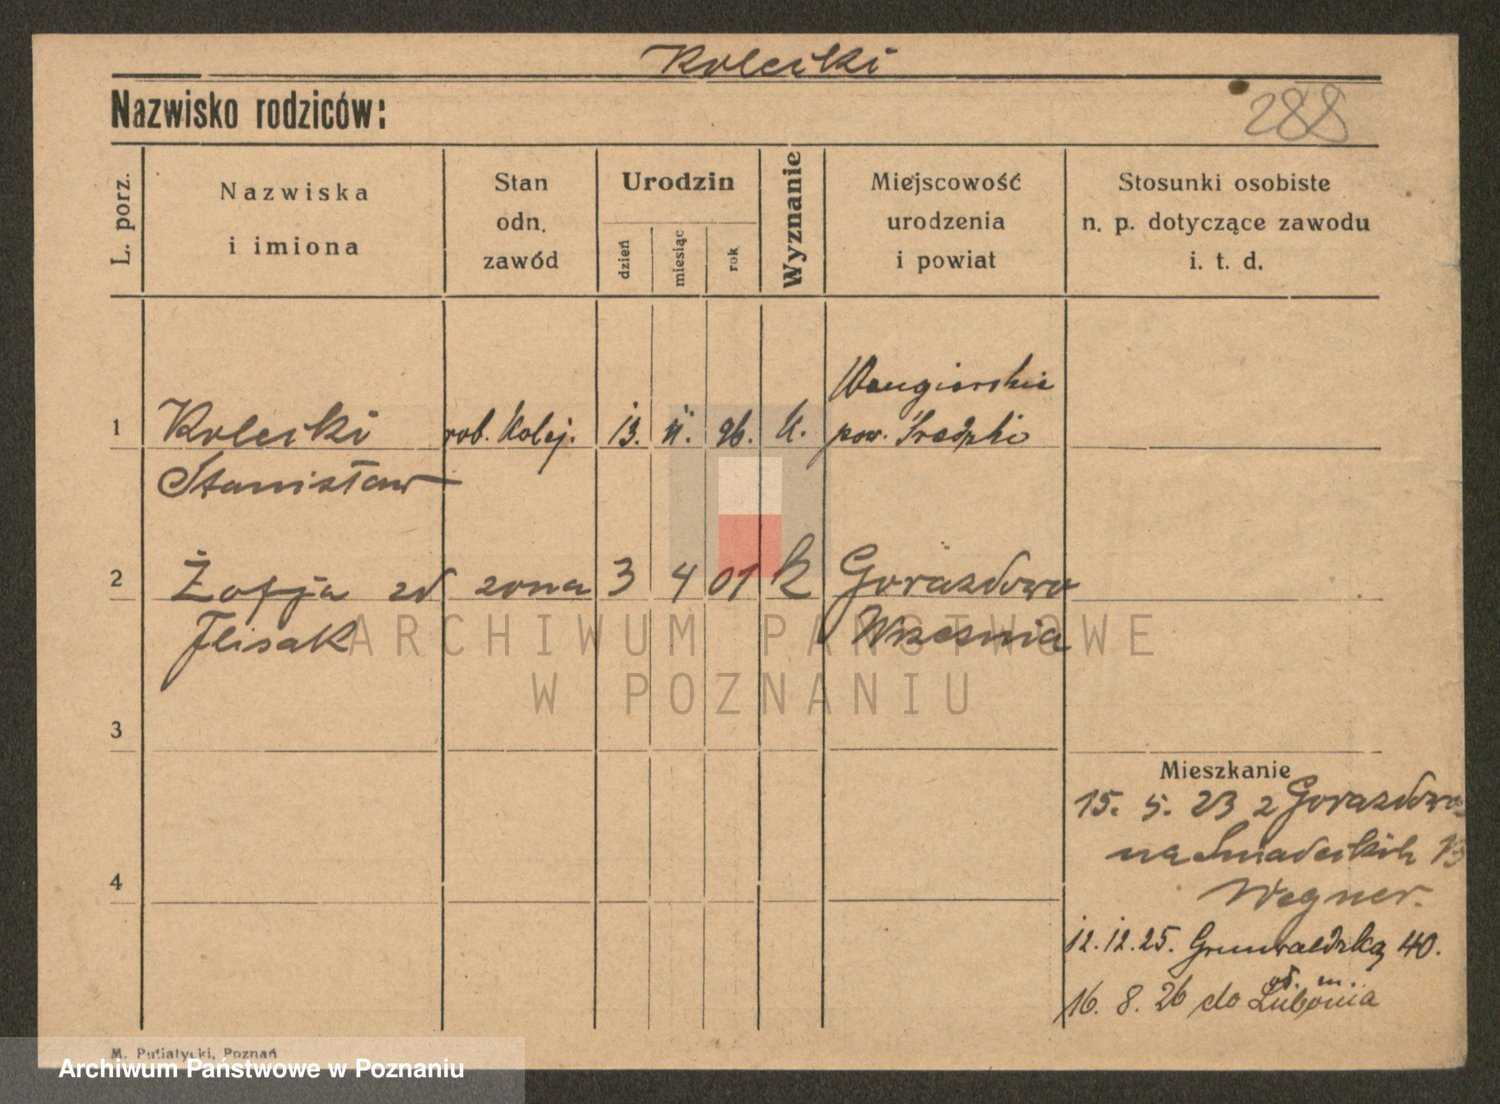 Kolecki
Nazwisko rodziców:
288
L. porz.
Nazwiska
i imiona
Stan
odn.
zawód
Urodzin
dzień
miesiąc
rok
Wyznanie
Miejscowość
urodzenia
i powiat
Stosunki osobiste
n. p. dotyczące zawodu
i. t. d.
1
Kolecki
Stanisław
rob. Kolej.
13.
11.
96.
K.
pow.
2
Zofja zd
Flisak
zona
3
4
01
k
Gorazdowo
Wrzesnia
3
4
Mieszkanie
15. 5. 23 z Gorazdowa
na Sniadeckich 13
Wegner.
12.12.25. Grunwaldzka 40.
16. 8. 26 do Lubonia
M. Putiatycki, Poznań
ARCHIWUM PAŃSTWOWE
W POZNANIU
Archiwum Państwowe w Poznaniu